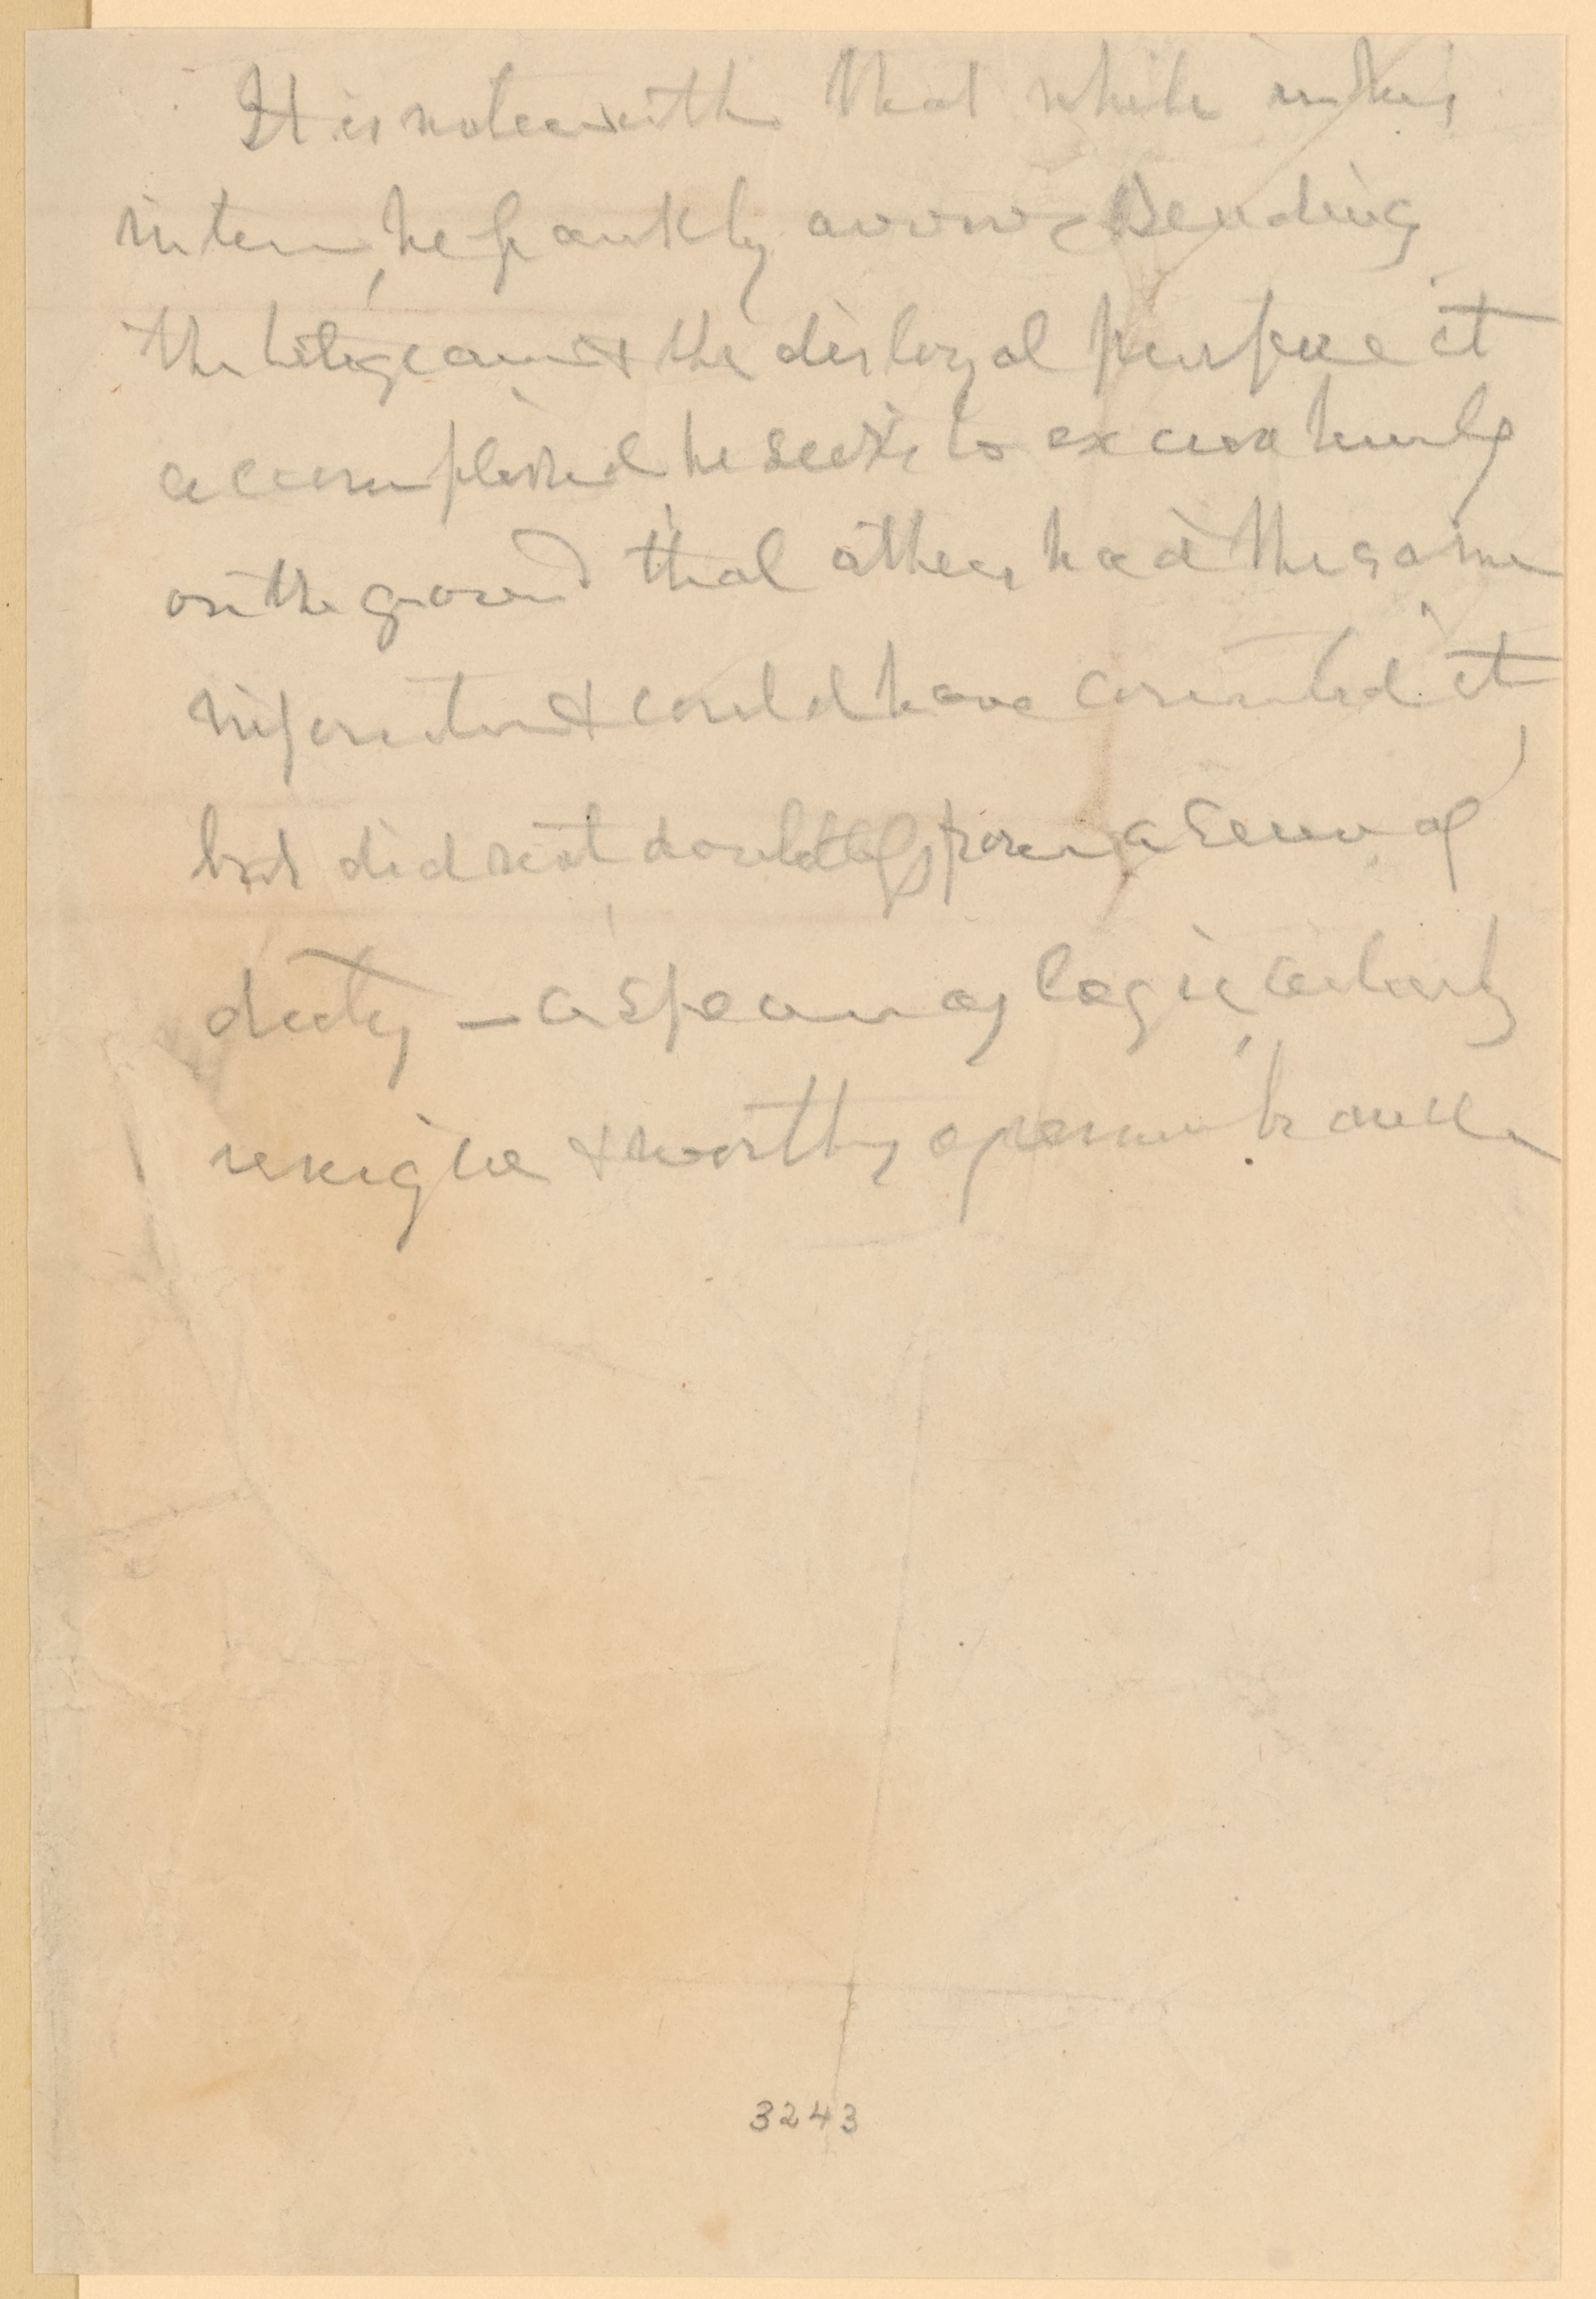 It is noteworth that while in this
interv, he frankly avows sending
the telegram & the disloyal purpose it
accomplished, he seeks to excuse himself
on the ground that others had the same
information & could have it,
but did not doubtless, from a sense of
duty — a specimen of logic, certainly
unique & worthy of remembrance
3243